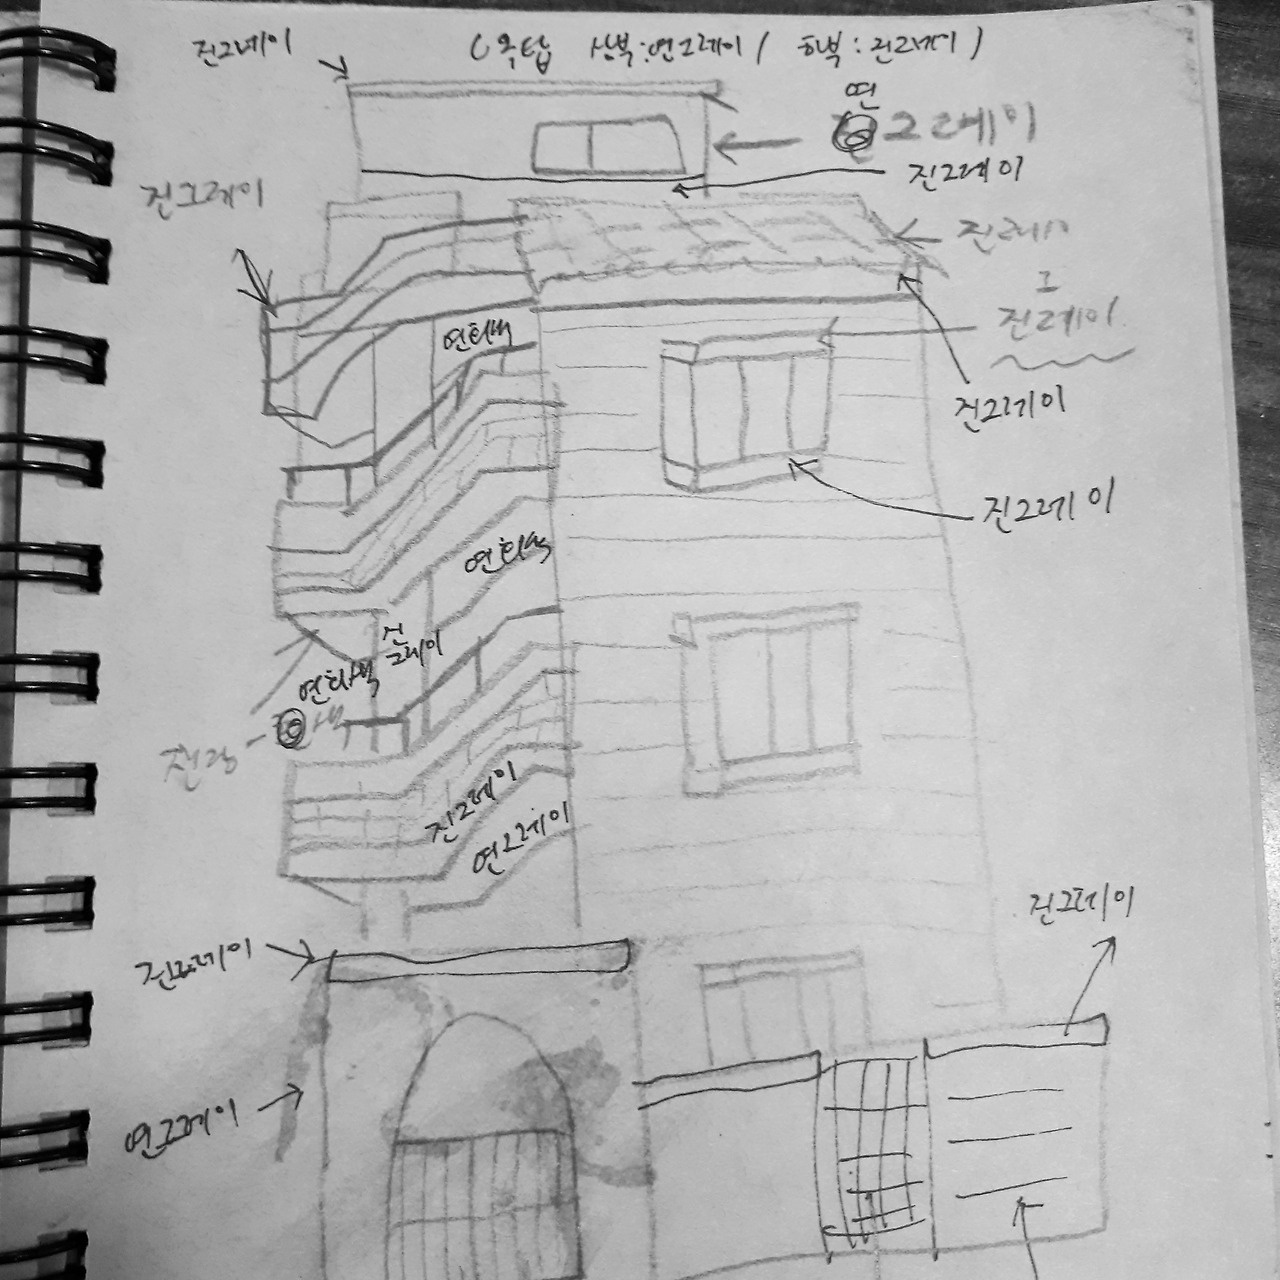 진그레이
(옥탑 상부:연그레이 / 하부:진그레이)
연그레이
진그레이
진그레이
진그레이
진그레이
연회색
진그레이
진그레이
연회색
진그레이
연회색
진그레이
연그레이
진그레이
진그레이
연그레이